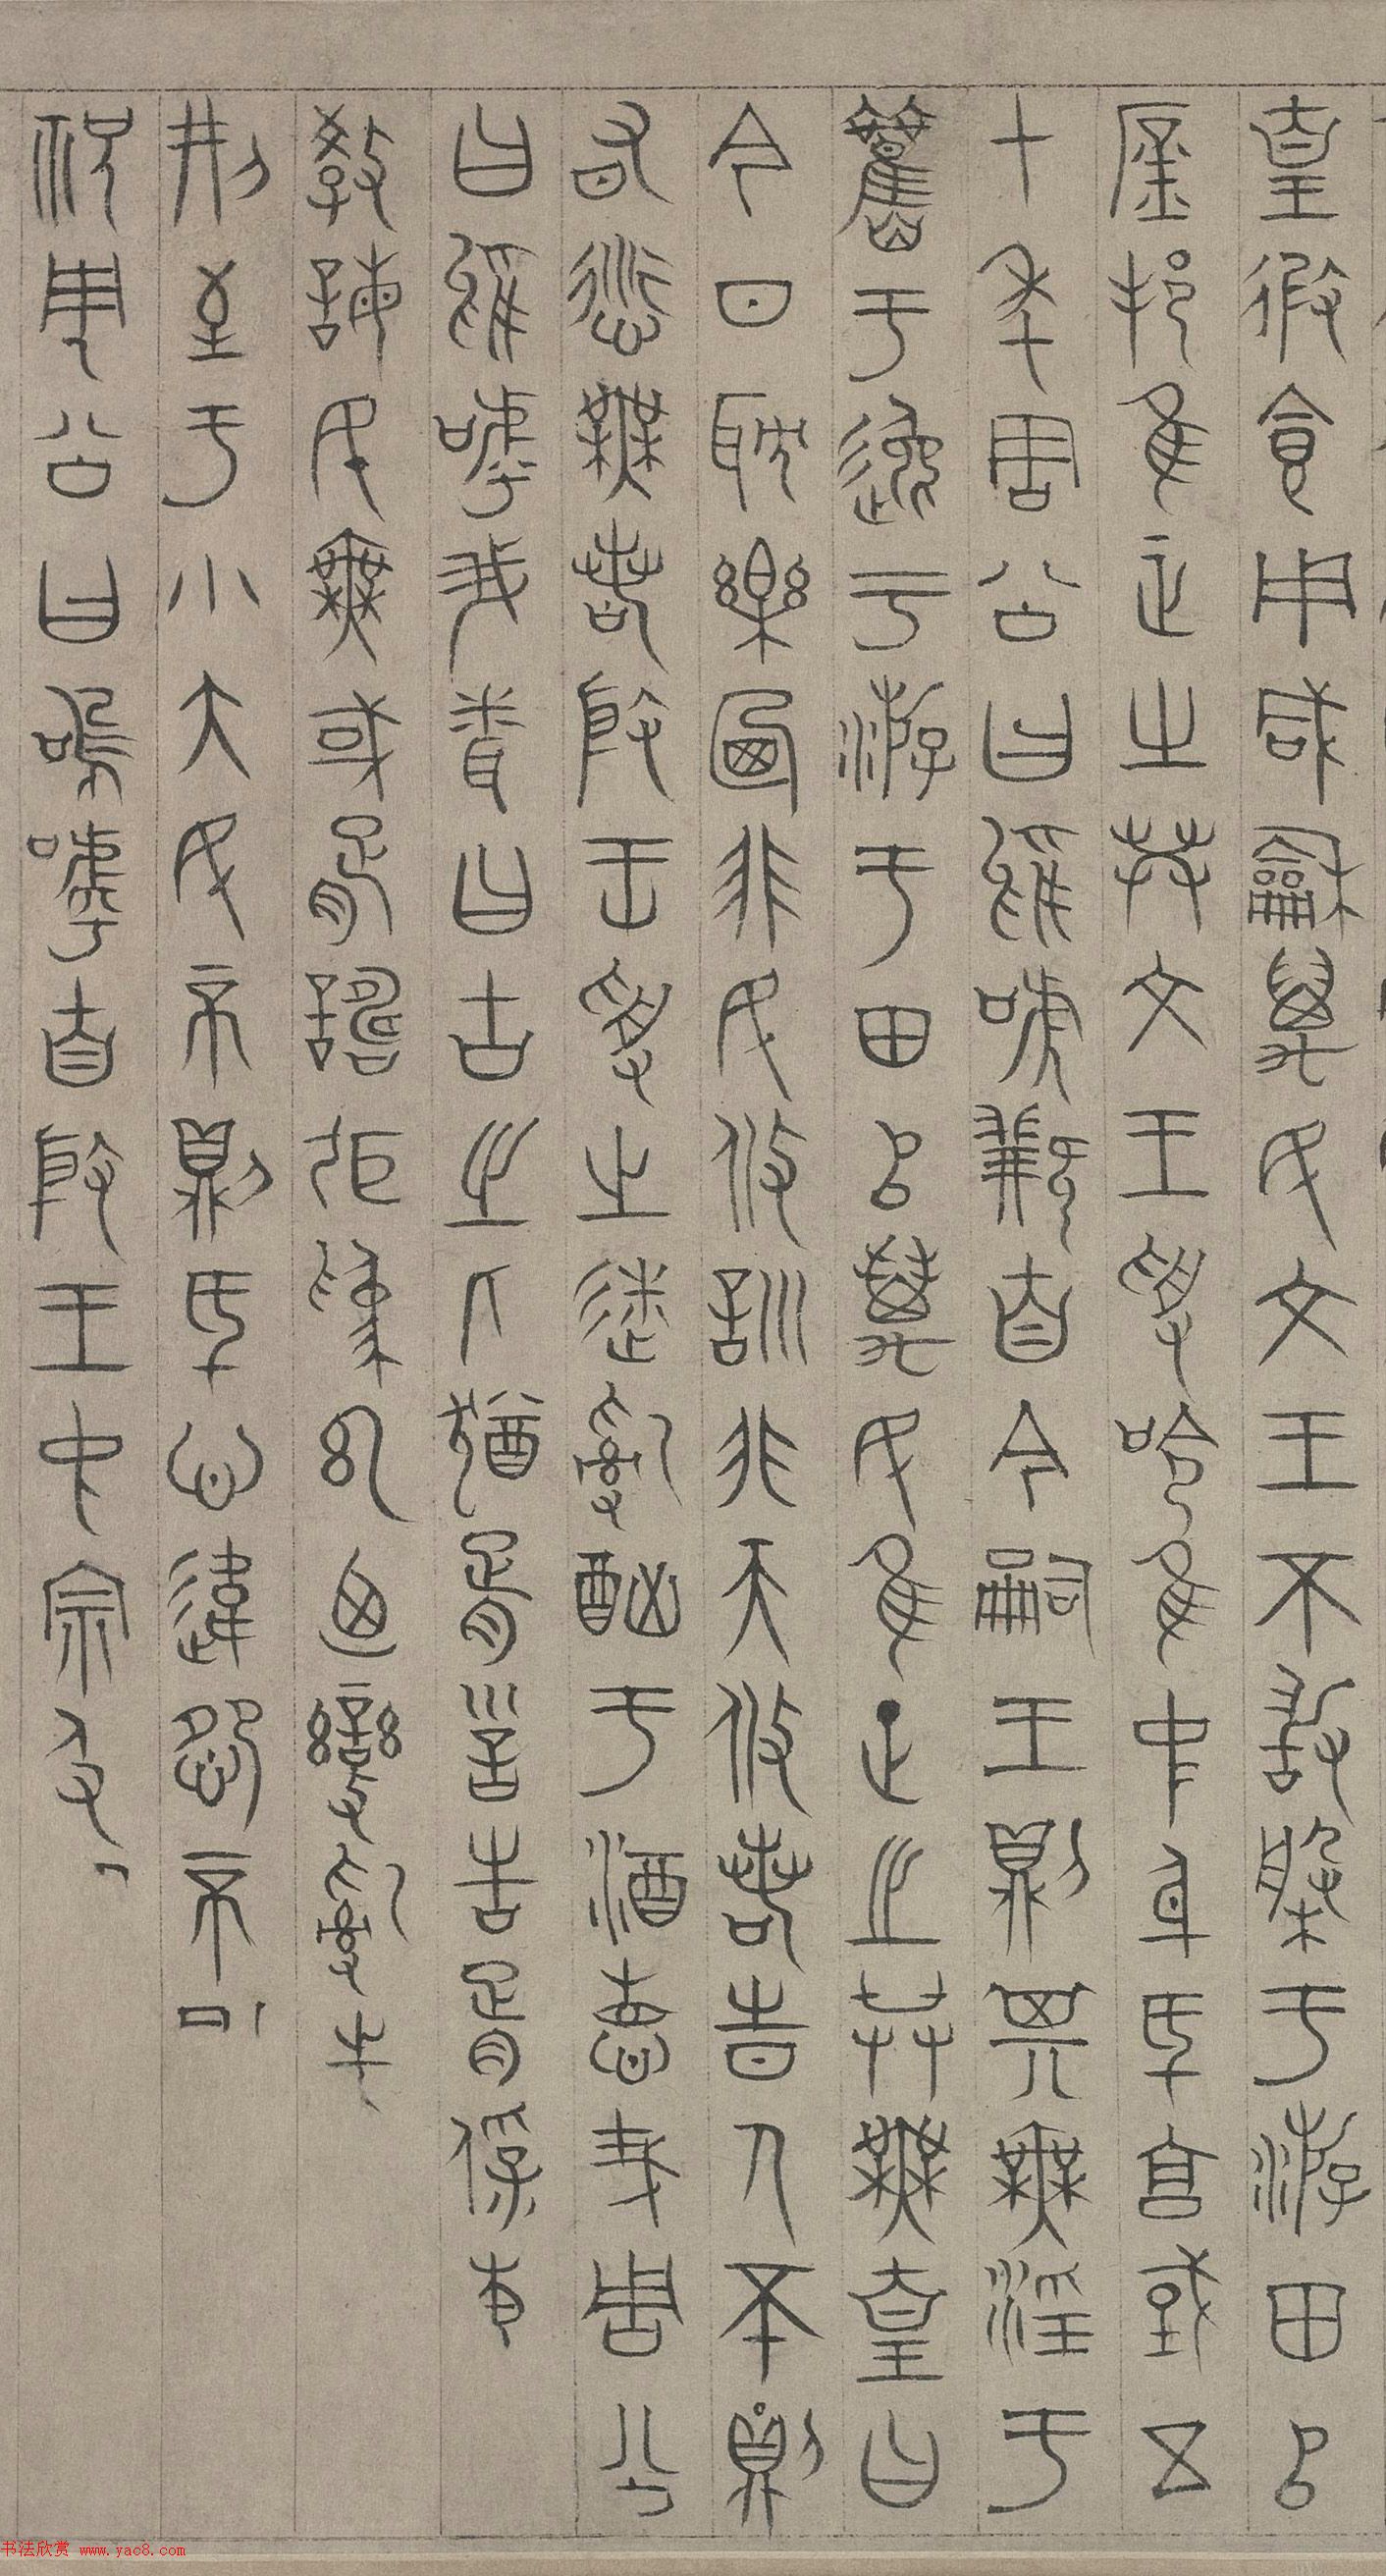 皇暇食用咸龢萬民文王不敢槃于游田以
庶邦惟正之共文王受命惟中身厥享國五
十年周公曰烏虖繼自今嗣王則其無淫于
舊于逸于游于田以萬民惟正之共無皇曰
今日耽樂圖非民攸訓非天攸若時人丕則
有愆無若殷王受之迷亂酗于酒德哉周公
曰烏虖我聞曰古之人猶胥訓告胥保惠
教誨民無或胥譸張爲幻乃變亂先
刑至于小大民否則厥心違怨否
祝周公曰烏虖自殷王中宗及
书法欣赏 www.yac8.com